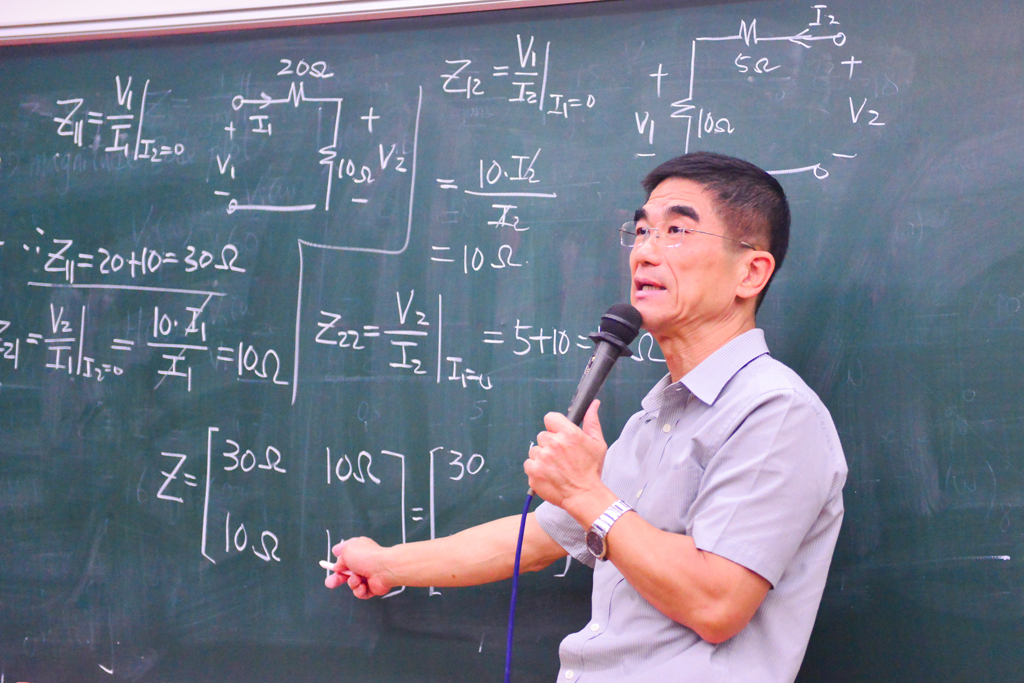 Z11 = V1/I1 |I2=0
20Ω
I1
+
V1
−
+
10Ω V2
−
∴ Z11 = 20+10 = 30Ω
Z21 = V2/I1 |I2=0 = 10·I1/I1 = 10Ω
Z12 = V1/I2 |I1=0
= 10·I2/I2
= 10Ω
I2
5Ω
+
V1
−
10Ω
+
V2
−
Z22 = V2/I2 |I1=0 = 5+10 = Ω
Z = [30Ω 10Ω] = [30
10Ω 1